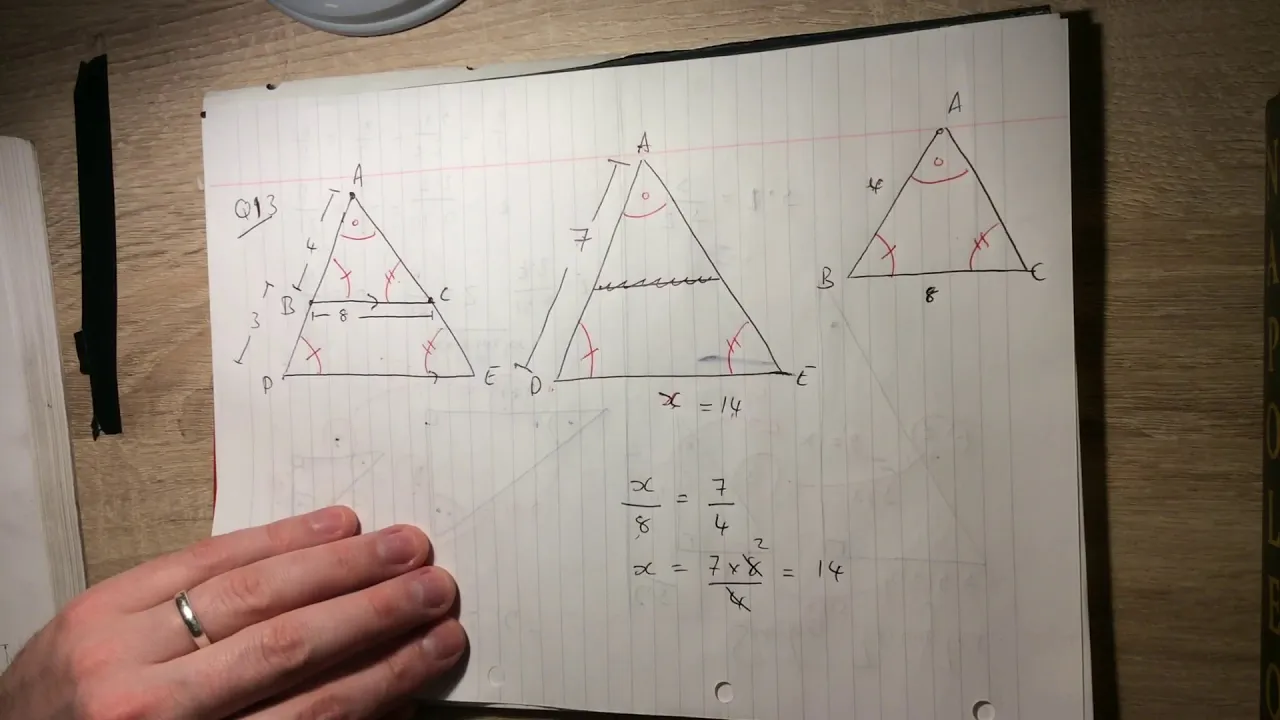 Q13
A
4
B
C
8
3
D
E
A
7
D
E
x = 14
A
4
B
C
8
x/8 = 7/4
x = 7 × 8 2 / 4 = 14